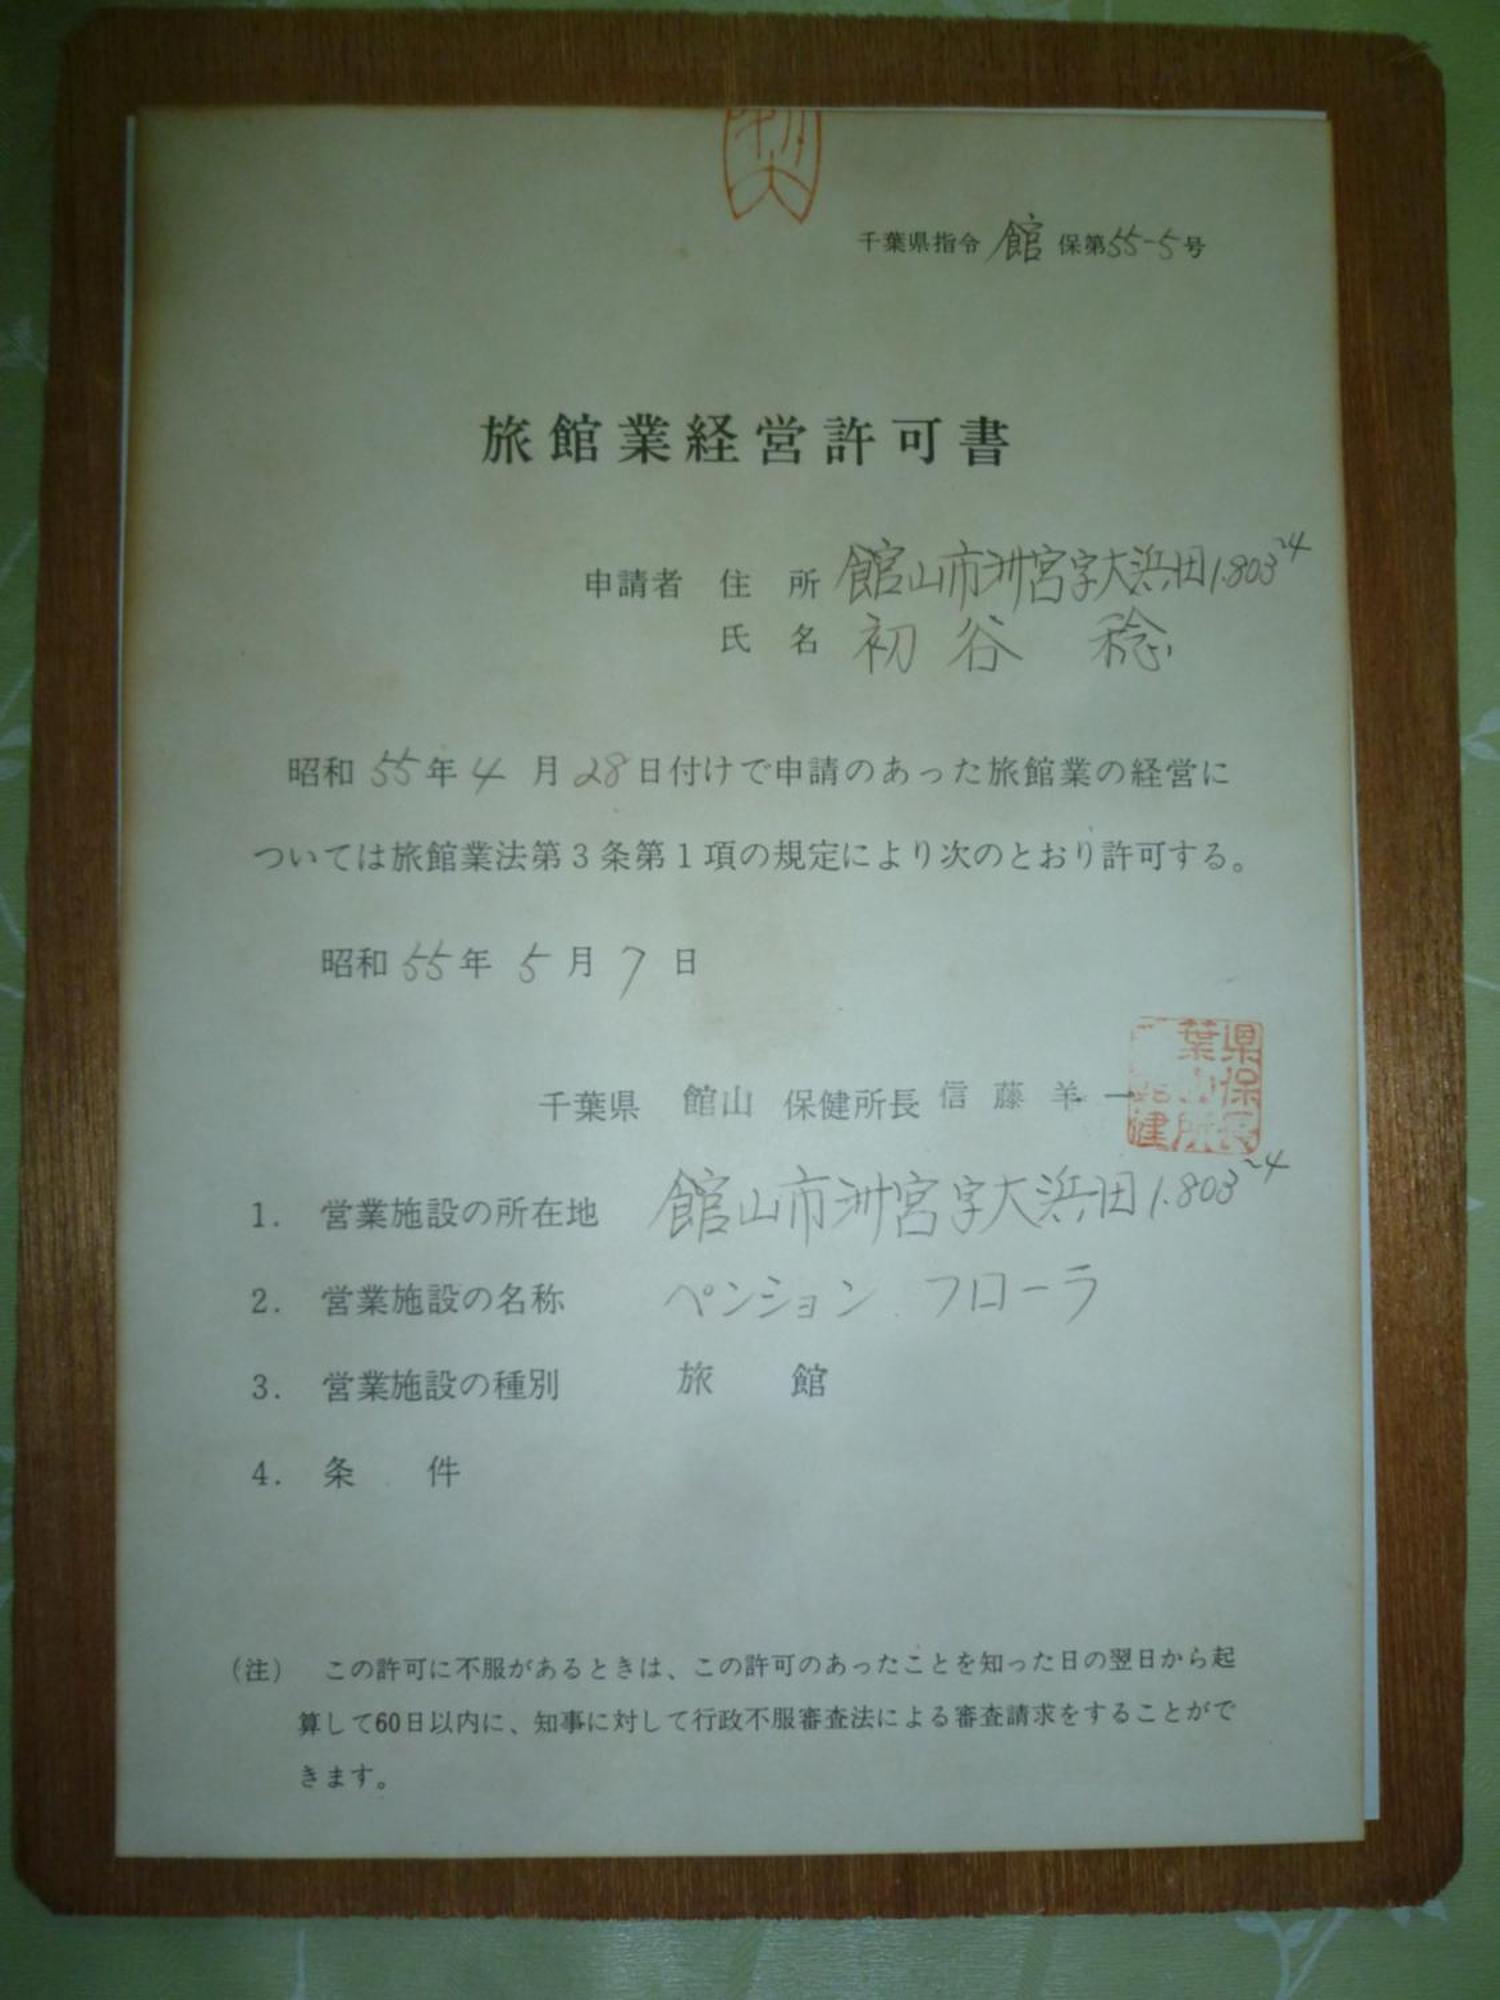 千葉県指令 館 保第55-5号
旅館業経営許可書
申請者 住所 館山市洲宮字大浜田1.803~4
氏名 初谷 稔
昭和 55年 4 月 28日付けで申請のあった旅館業の経営に
ついては旅館業法第3条第1項の規定により次のとおり許可する。
昭和 55年 5 月 7 日
千葉県 館山 保健所長 信藤羊一
1. 営業施設の所在地 館山市洲宮字大浜田1.803~4
2. 営業施設の名称 ペンション フローラ
3. 営業施設の種別 旅館
4. 条件
(注) この許可に不服があるときは、この許可のあったことを知った日の翌日から起
算して60日以内に、知事に対して行政不服審査法による審査請求をすることがで
きます。